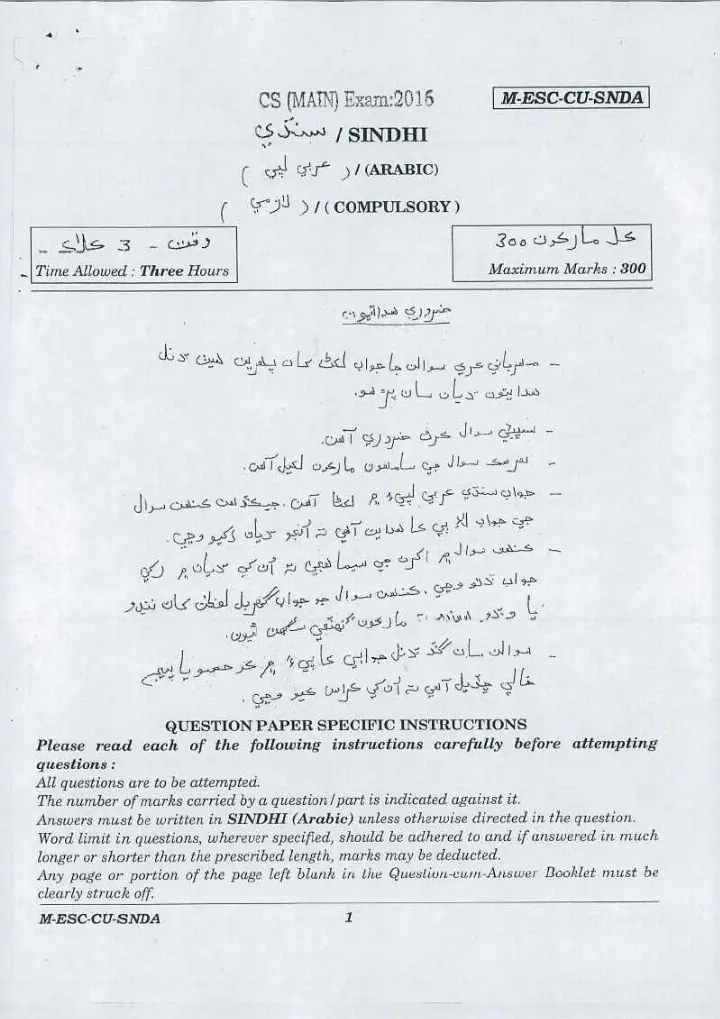 CS (MAIN) Exam:2016
M-ESC-CU-SNDA
سنڌي / SINDHI
( عربي لپي ) / (ARABIC)
( لازمي ) / ( COMPULSORY )
وقت - 3 ڪلاڪ -
Time Allowed : Three Hours
ڪل مارڪون 300
Maximum Marks : 300
ضروري هدايتون
- مهرباني ڪري سوالن جا جواب لکڻ کان پهرين هيٺ ڏنل
هدايتون ڌيان سان پڙهو.
- سڀيئي سوال ڪرڻ ضروري آهن.
- هرهڪ سوال جي سامهون مارڪون لکيل آهن.
- جواب سنڌي عربي لپيءَ ۾ لکڻا آهن. جيڪڏهن ڪنهن سوال
جي جواب لاءِ ٻي هدايت آهي ته اُنجو ڌيان رکيو وڃي.
- ڪنهن سوال ۾ اکرن جي سيما هجي ته اُن کي ڌيان ۾ رکي
جواب ڏنو وڃي. ڪنهن سوال جو جواب گهربل لفظن کان ننڍو
يا وڏو ته مارڪون گهٽجي سگهن ٿيون.
- سوالن سان گڏ ڏنل جوابي ڪاپيءَ ۾ ڪو حصو يا پيج
خالي ڇڏيل آهي ته اُن کي ڪراس ڪيو وڃي.
QUESTION PAPER SPECIFIC INSTRUCTIONS
Please read each of the following instructions carefully before attempting
questions :
All questions are to be attempted.
The number of marks carried by a question / part is indicated against it.
Answers must be written in SINDHI (Arabic) unless otherwise directed in the question.
Word limit in questions, wherever specified, should be adhered to and if answered in much
longer or shorter than the prescribed length, marks may be deducted.
Any page or portion of the page left blank in the Question-cum-Answer Booklet must be
clearly struck off.
M-ESC-CU-SNDA
1